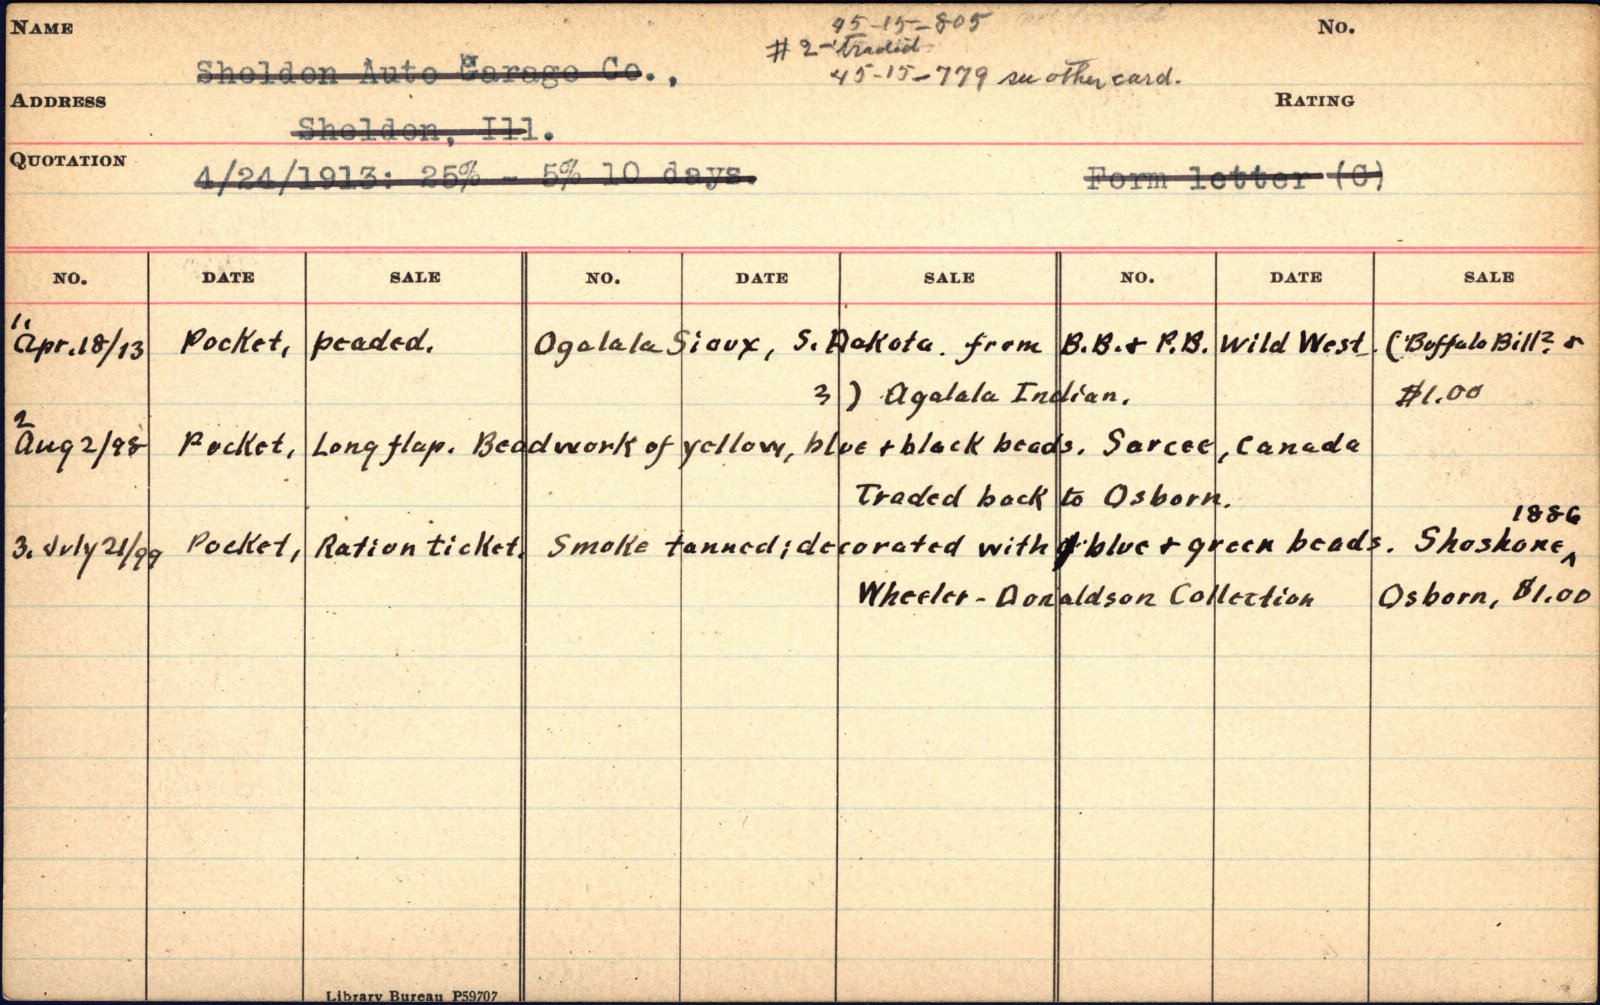 NAME 45-15-805 No.
# 2-traded
Sheldon Auto Garage Co.,
45-15-779 see other card.
ADDRESS RATING
Sheldon, Ill.
QUOTATION
4/24/1913: 25% - 5% 10 days. Form letter (C)
NO. DATE SALE NO. DATE SALE NO. DATE SALE
1.
Apr.18/13 Pocket, beaded. Ogalala Sioux, S. Dakota. from B.B. & P.B. Wild West. (Buffalo Bill 2 &
3) Agalala Indian. $1.00
2
Aug 2/98 Pocket, Long flap. Beadwork of yellow, blue & black beads. Sarcee, Canada
Traded back to Osborn.
1886
3. July 21/99 Pocket, Ration ticket. Smoke tanned; decorated with blue & green beads. Shoshone ^
Wheeler-Donaldson Collection Osborn, $1.00
Library Bureau P59707